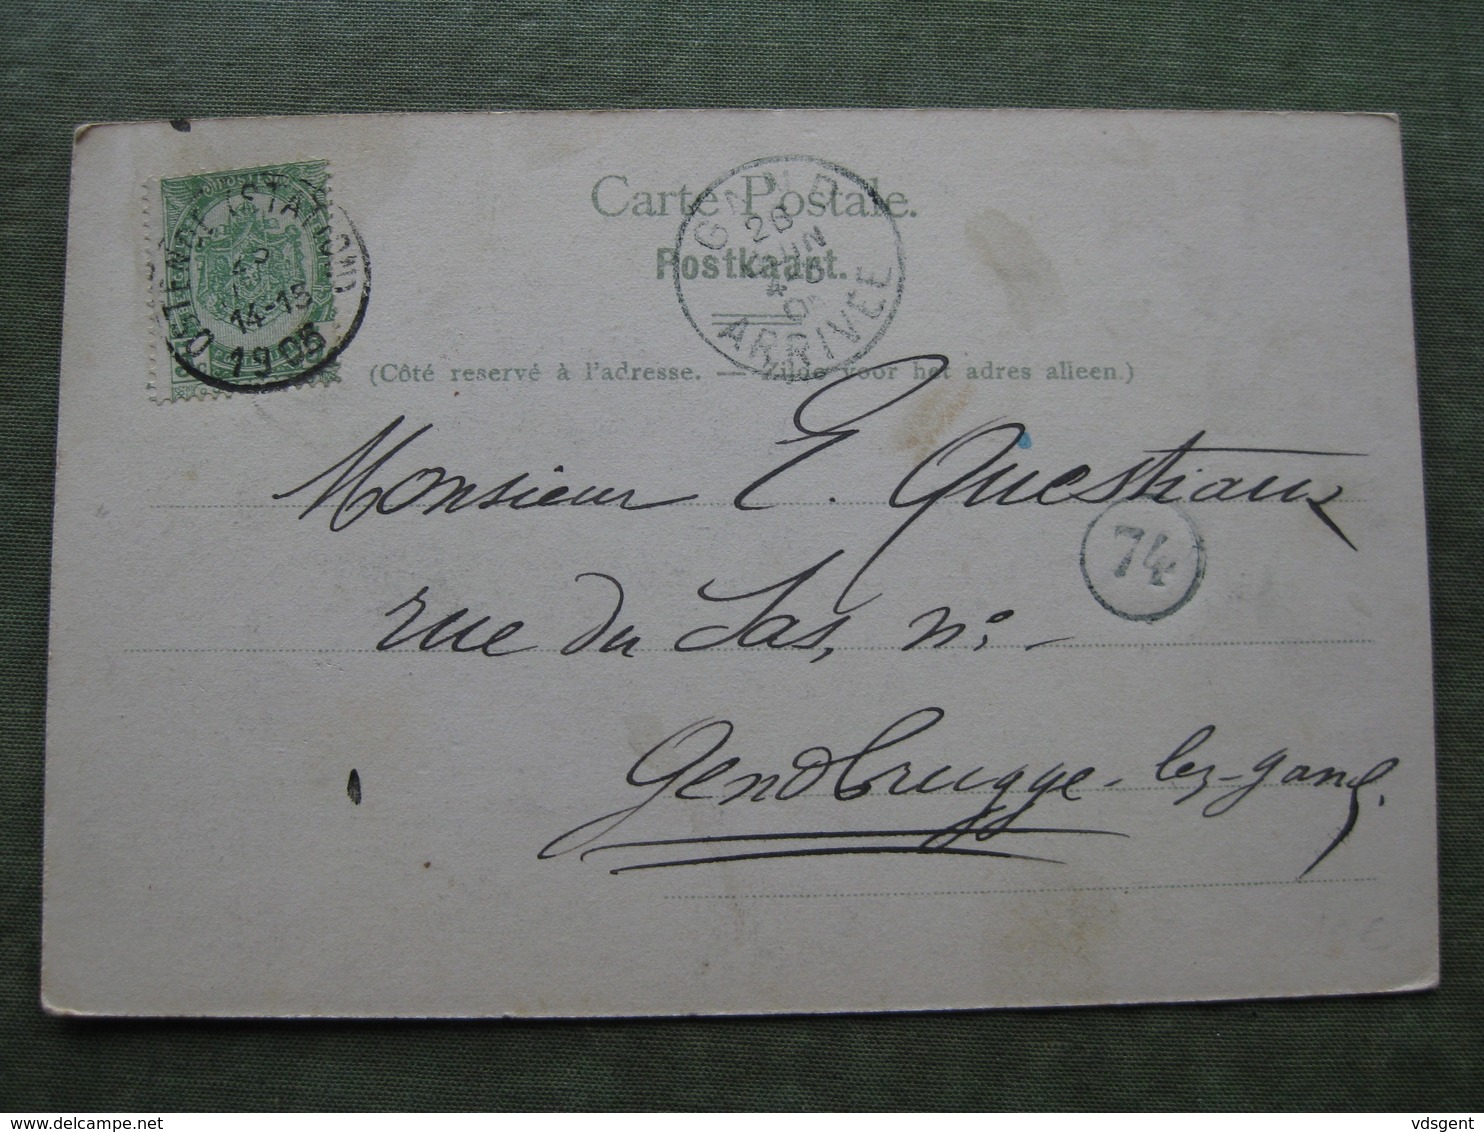 Carte Postale.
Postkaart.
OSTENDE (STATION)
14-15
1905
GAND
20
JUIN
ARRIVÉE
(Côté reservé à l'adresse. — Zijde voor het adres alleen.)
Monsieur E. Questiaux
74
rue du Sas, n: -
Gendbrugge-lez-Gand.
delcampe.net
vdsgent